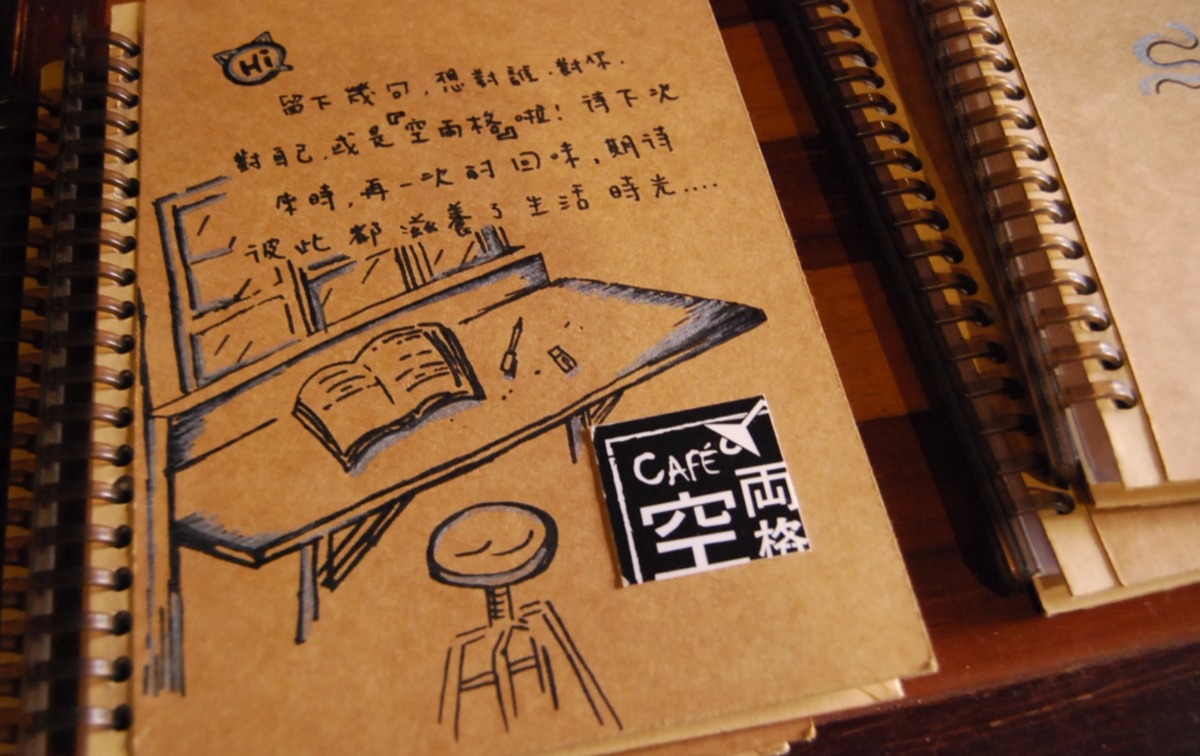 Hi
留下幾句,想對誰.對你.
對自己.或是『空両格』啦!待下次
來時,再一次的回味,期待
彼此都滋養了生活時光....
CAFÉ
空
両格